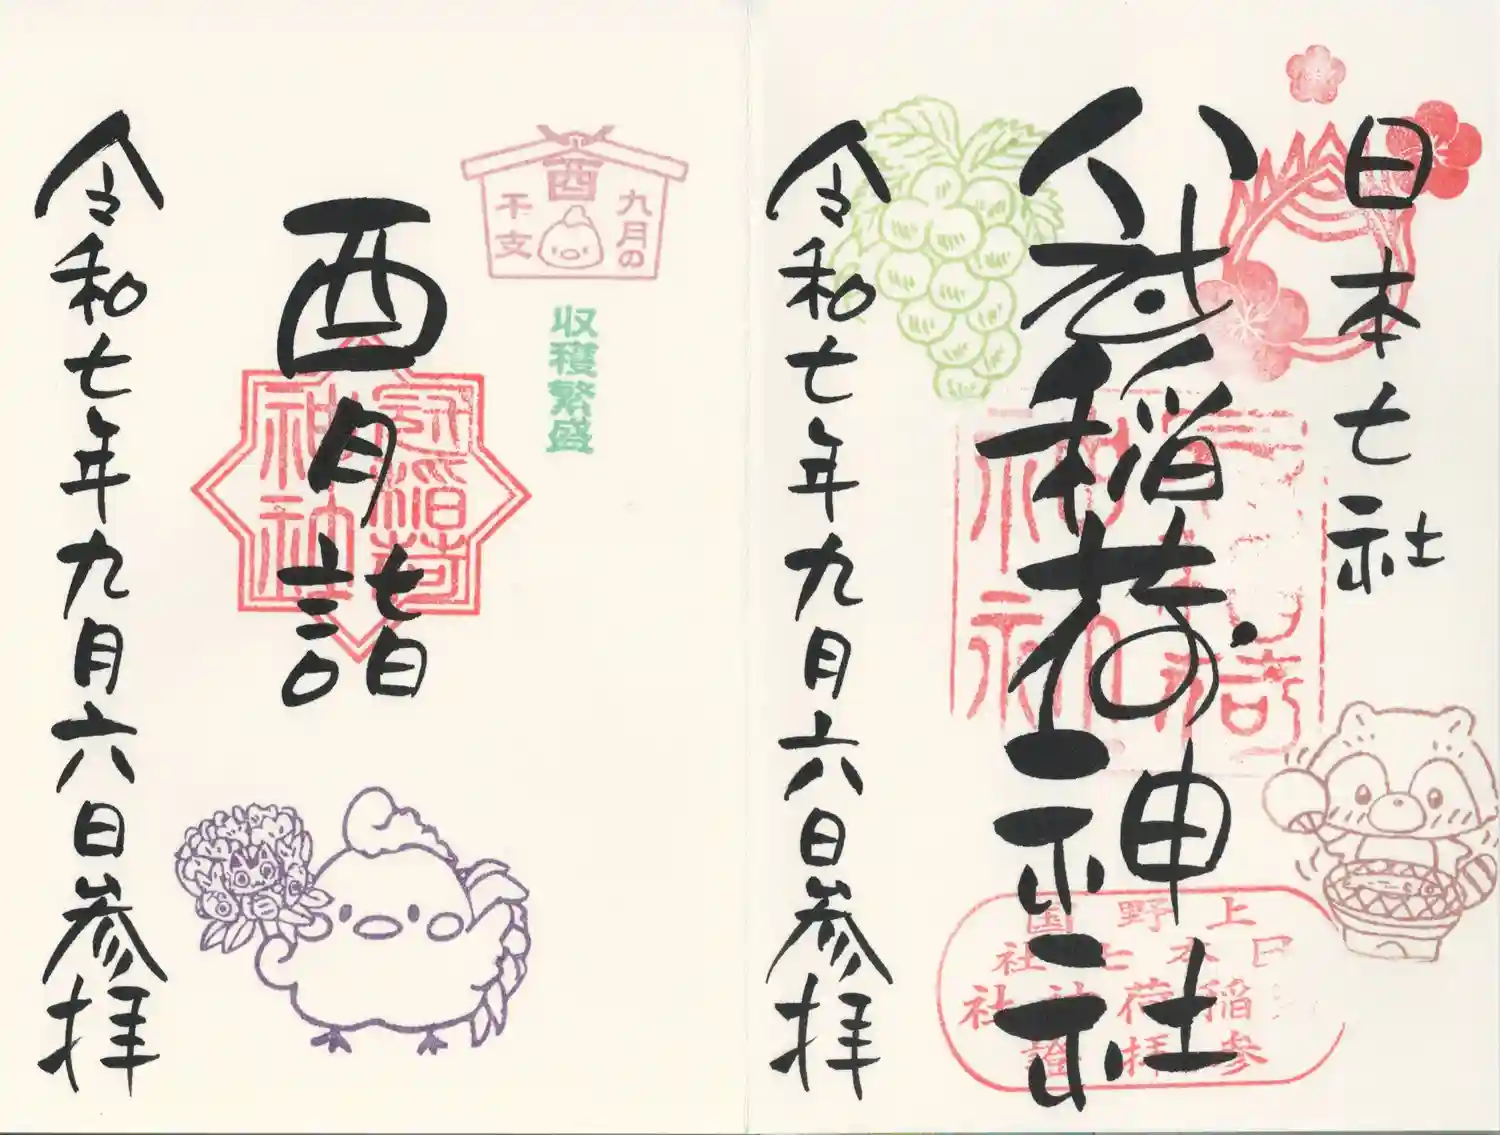 日本七社
冠稲荷神社
上野国
日本七社
稲荷神社
参拝證
令和七年九月六日参拝
酉
九月の
干支
収穫繁盛
酉月詣
冠稲荷
神社
令和七年九月六日参拝